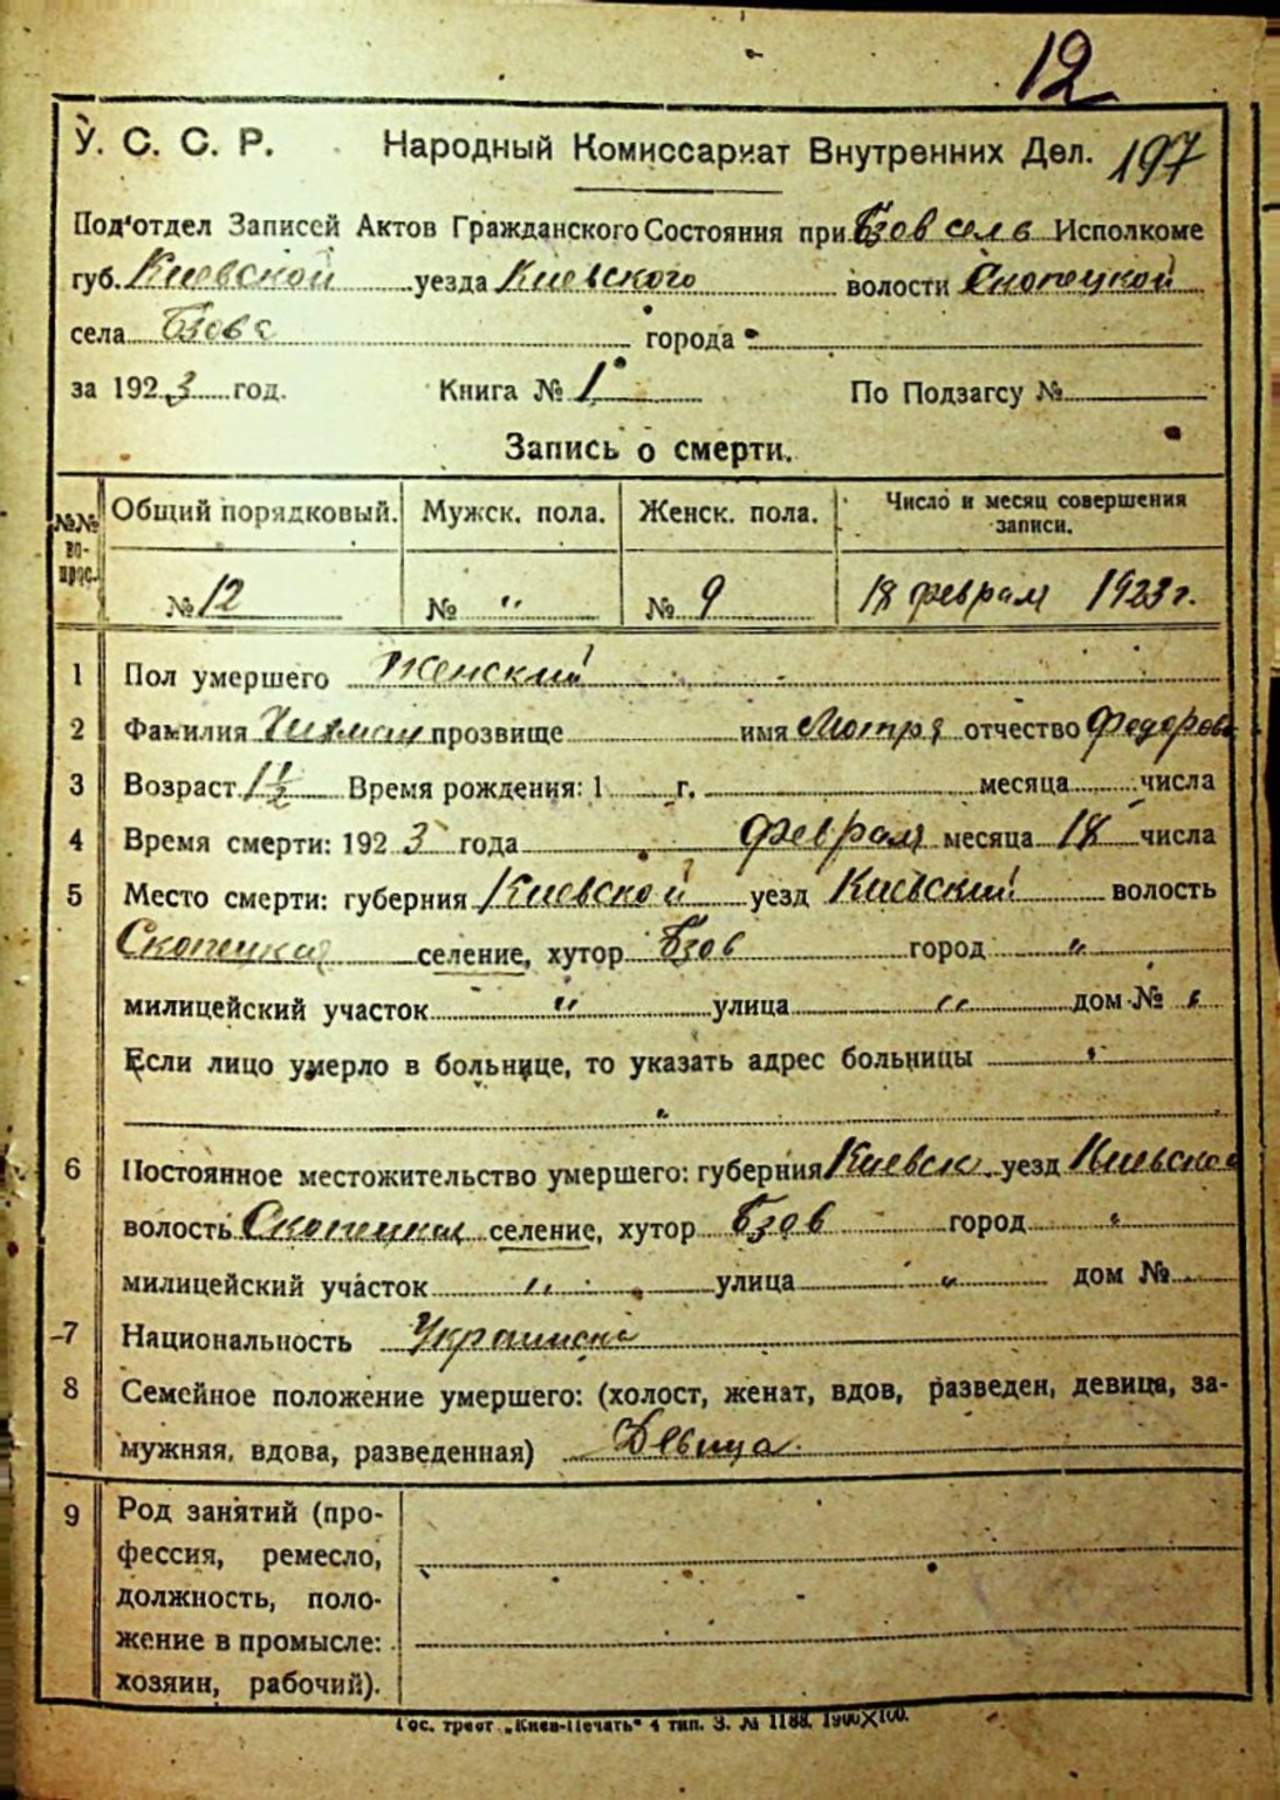 12
У. С. С. Р. Народный Комиссариат Внутренних Дел. 197
Под'отдел Записей Актов Гражданского Состояния при Бзов сель Исполкоме
губ. Киевской уезда Киевского волости Скопецкой
села Бзова города
за 1923 год. Книга № 1 По Подзагсу №
Запись о смерти.
№№ вопрос. Общий порядковый. Мужск. пола. Женск. пола. Число и месяц совершения записи.
№ 12 № " № 9 18 февраля 1923 г.
1 Пол умершего Женский
2 Фамилия прозвище имя Мотря отчество Федоров
3 Возраст 1 1/2 Время рождения: 1 г. месяца числа
4 Время смерти: 1923 года февраля месяца 18 числа
5 Место смерти: губерния Киевской уезд Киевский волость
Скопецкая селение, хутор Бзов город "
милицейский участок " улица " дом № "
Если лицо умерло в больнице, то указать адрес больницы "
"
6 Постоянное местожительство умершего: губерния Киевск уезд Киевской
волость Скопецкая селение, хутор Бзов город "
милицейский участок " улица " дом №
7 Национальность Украинска
8 Семейное положение умершего: (холост, женат, вдов, разведен, девица, за-
мужняя, вдова, разведенная) Девица.
9 Род занятий (про-
фессия, ремесло,
должность, поло-
жение в промысле:
хозяин, рабочий).
Гос. трест „Киев-Печать" 4 тип. З. № 1188. 1900X100.